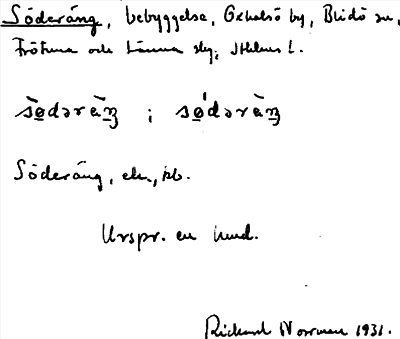 Söderäng, bebyggelse, Gräskö by, Blidö sn,
Frötuna och Länna slg; Sthlms l.
sø̀dəràŋ ; sǿdəràŋ
Söderäng, ek., kb.
Urspr. en lund.
Rickard Norrman 1931.